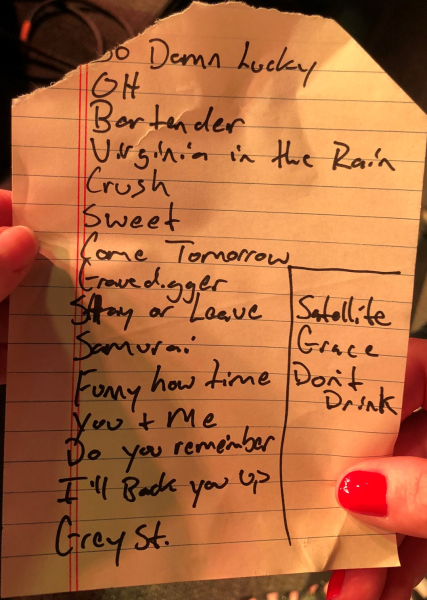 So Damn Lucky
OH
Bartender
Virginia in the Rain
Crush
Sweet
Come Tomorrow
Gravedigger
Stay or Leave
Samurai
Funny how time
You + Me
Do you remember
I'll Back you Up
Grey St.
Satellite
Grace
Don't
Drink